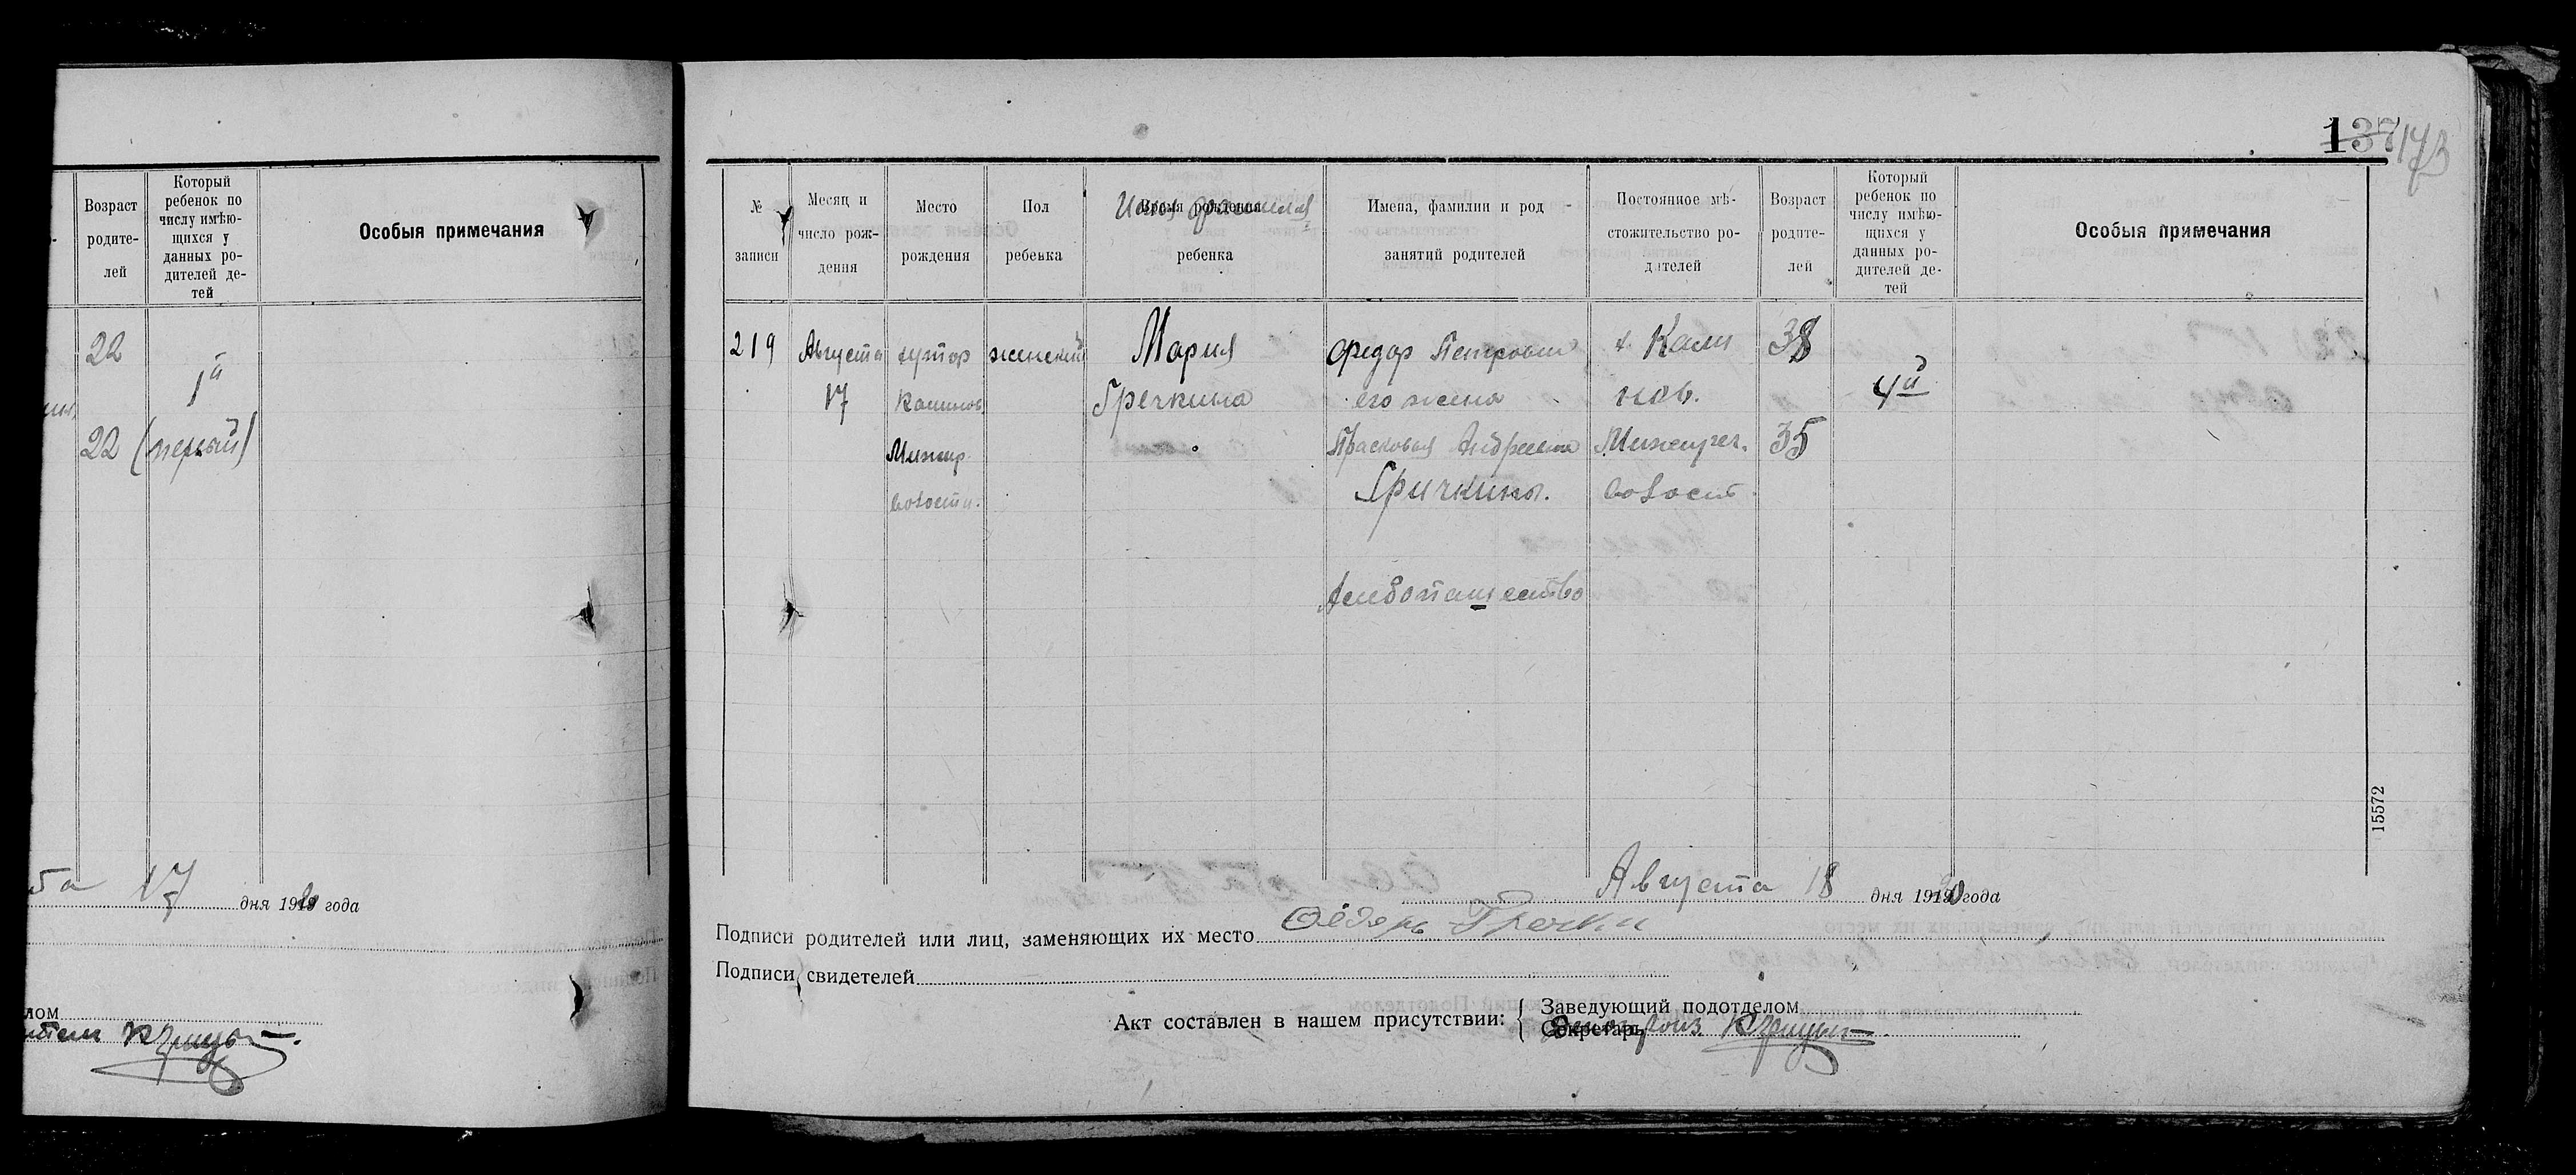 137 173
Возраст
родите-
лей
Который
ребенок по
числу имѣю-
щихся у
данных ро-
дителей де-
тей
Особыя примечания
22
1й
22 (первый)
17 дня 1920 года
лом
№
записи
Месяц и
число рож-
дения
Место
рождения
Пол
ребенка
Имя фамилия
Время рождения
ребенка
Имена, фамилии и род
занятий родителей
Постоянное мѣ-
стожительство ро-
дителей
Возраст
родите-
лей
Который
ребенок по
числу имѣю-
щихся у
данных ро-
дителей де-
тей
Особыя примечания
219
Августа
17
хутор
Калинов
Мижир.
волости.
женский
Мария
Гречкина
Федор Петрович
его жена
Прасковья Андреевна
Гричкины.
Хлебопашество
х. Кали
нов.
Мижиреч.
волост.
38
35
4й
15572
Августа 18 дня 1920 года
Подписи родителей или лиц, заменяющих их место Федоръ Гречки
Подписи свидетелей
Акт составлен в нашем присутствии:
Заведующий подотделом
Секретарь